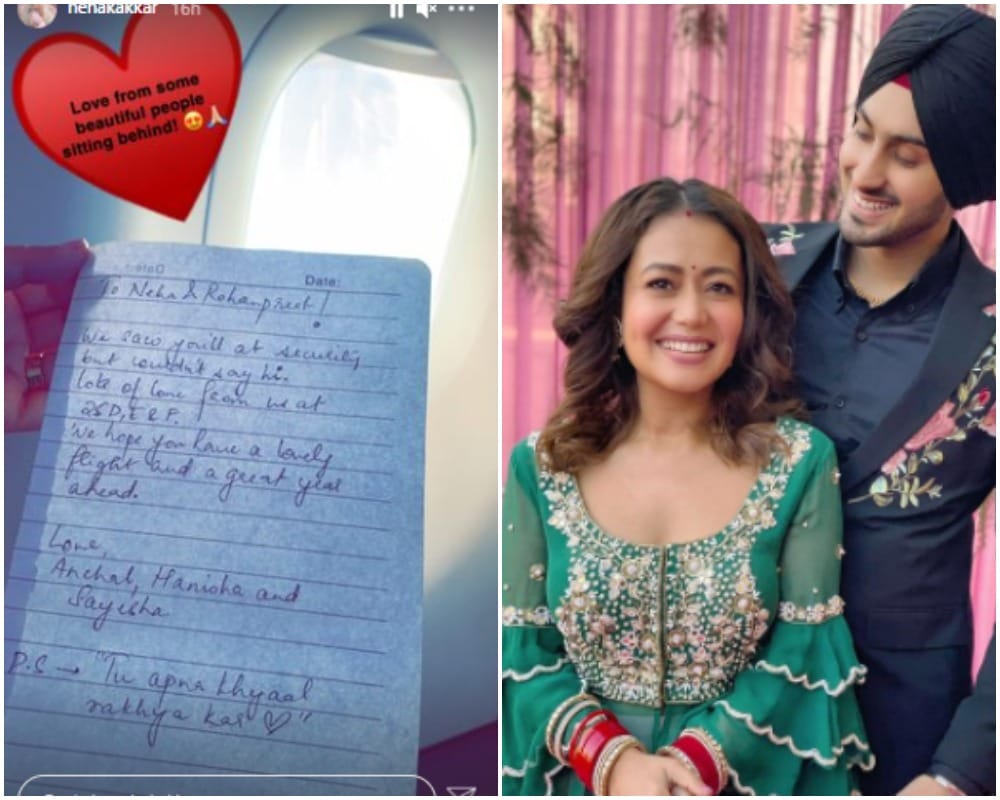 nehakakkar 16h
Love from some
beautiful people
sitting behind! 😍🙏
Date:
To Neha & Rohanpreet!
We saw you'll at security
but couldn't say hi.
lots of love from us at
25D, E & F.
We hope you have a lovely
flight and a great year
ahead.
Love,
Anchal, Hanisha and
Sayesha
P.S → "Tu apna khyaal
rakhya kar ♡"